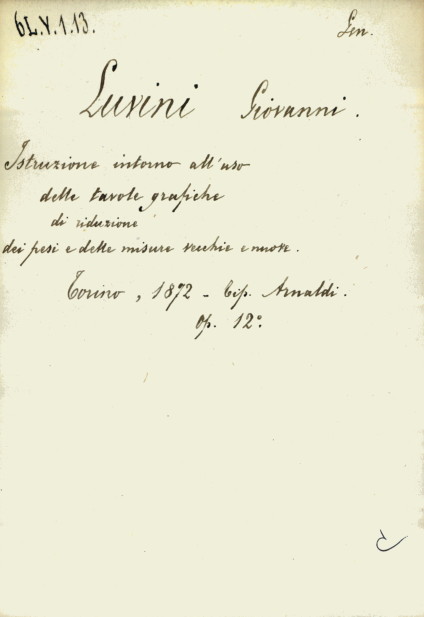 6L.V.1.13.
Gen.
Luvini Giovanni.
Istruzione intorno all'uso
delle tavole grafiche
di riduzione
dei pesi e delle misure vecchie e nuove.
Torino, 1872 - Tip. Arnaldi.
Op. 12°.